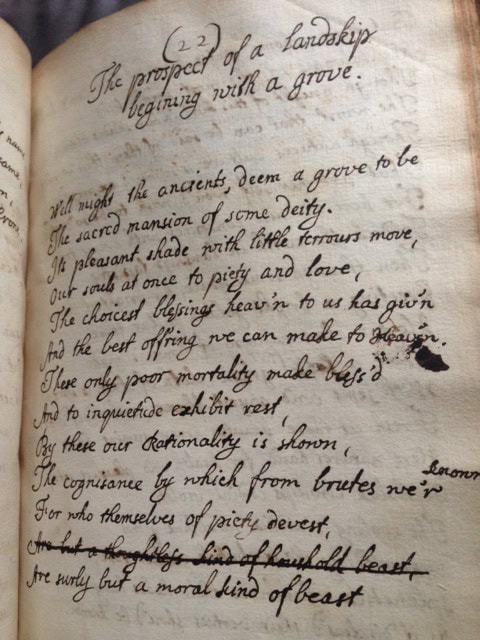 (22)
The prospect of a landskip
begining with a grove.
Well might the ancients, deem a grove to be
The sacred mansion of some deity.
Its pleasant shade with little terrours move,
Our souls at once to piety and love,
The choicest blessings heav'n to us has giv'n
And the best offring we can make to Heav'n.
These only poor mortality make bless'd
And to inquietude exhibit rest,
By these our Rationality is shown,
The cognisance by which from brutes we'r known
For who themselves of piety devest,
Are but a thoughtless kind of houshold beast,
Are surly but a moral kind of beast